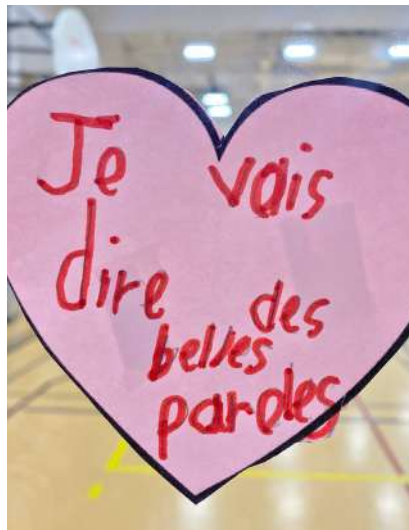 Je vais
dire des
belles
paroles